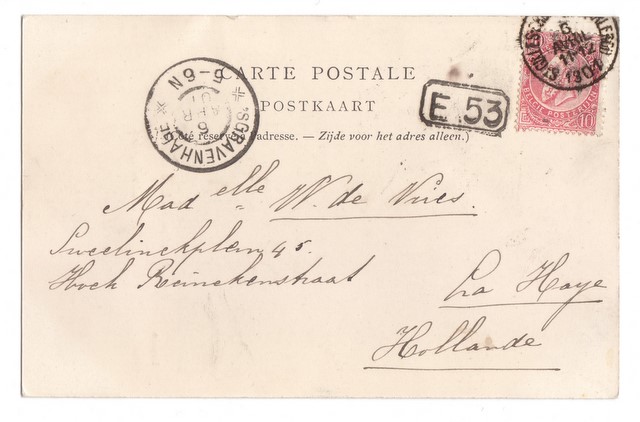 CARTE POSTALE
POSTKAART
(Côté réservé à l'adresse. — Zijde voor het adres alleen.)
'SGRAVENHAGE
5-6N
6
APR
01
E 53
6
AVRIL
11-12
1901
BELGIQUE
10
Mad elle W. de Vries.
Sweelinckplein 45.
Hoek Reinckenstraat
La Haye
Hollande